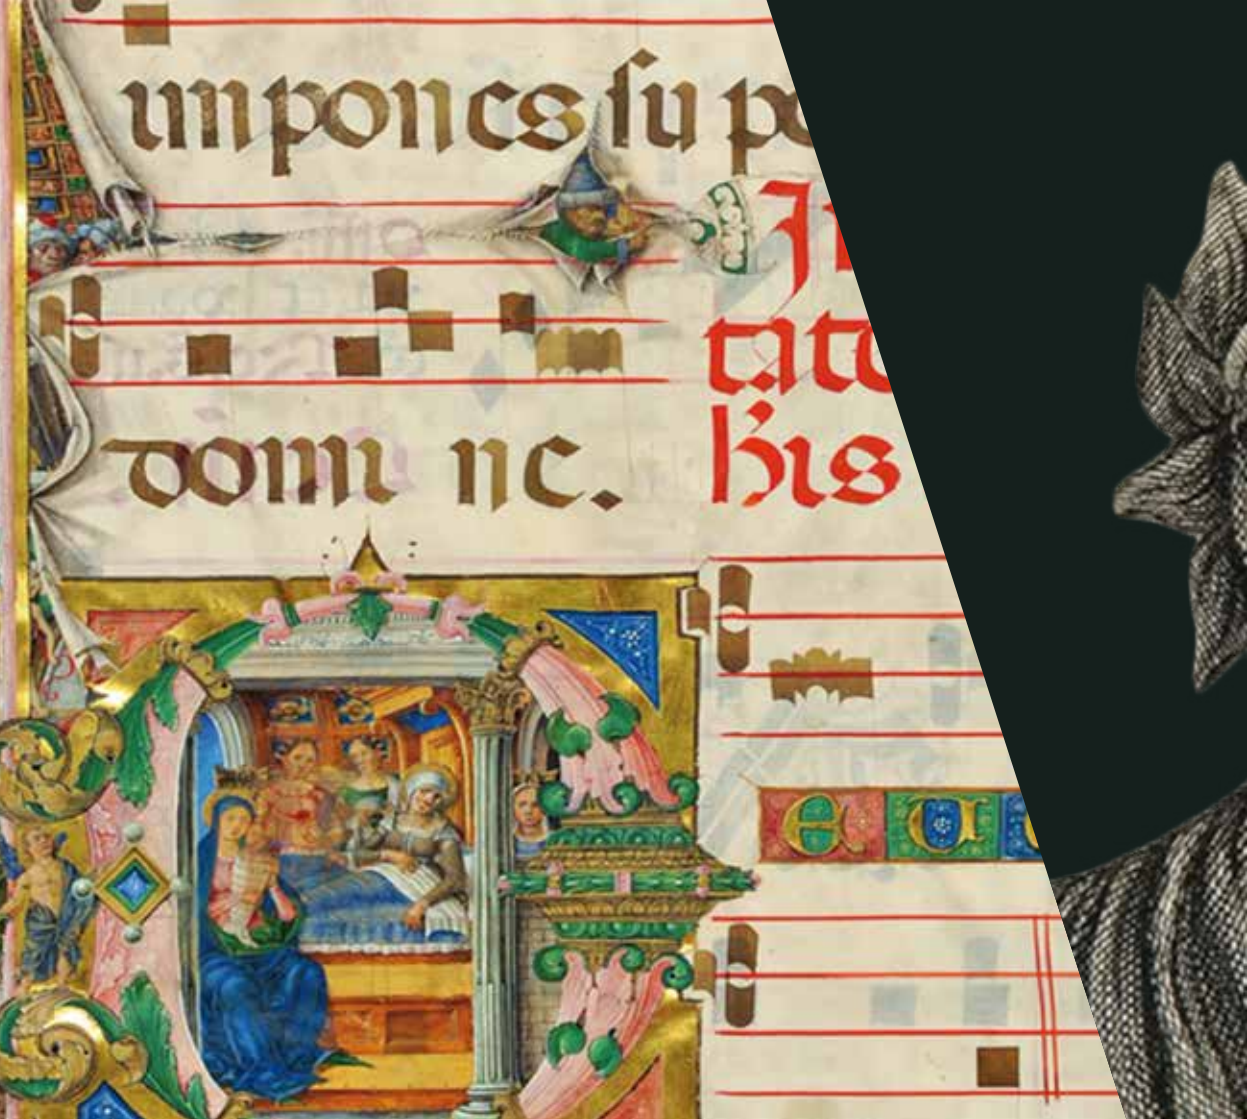 impones su
domi ne.
In
tate
his
eu